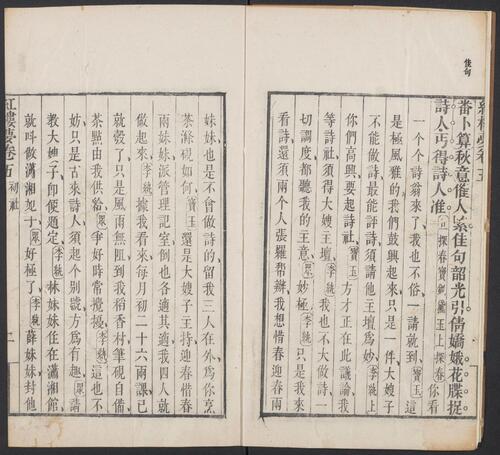 佳句
紅樓夢卷五
番卜算秋意催人索佳句韶光引儔嬌娥花牒捉
詩人丐得詩人准探春寶釵黛玉上探春你看
一个个詩翁來了我也不俗一請就到寶玉這
是極風雅的我們鼓興起來只是一件大嫂子
不能做詩最能評詩須請他主壇為妙李紈上
你們高興要起詩社寶玉方才正在此議論我
等詩社須得大嫂主壇李紈我也不大做詩一
切調度都聽我的主意眾妙極李紈只是我來
看詩還須兩个人張羅帮辦我想惜春迎春
妹妹也是不會做詩的留我三人在外爲你烹
茶滌硯如何寶玉還是大嫂子主持迎春惜春
兩妹妹派管理記室倒也各適其適我四人就
做起來李紈據我看來每月初二十六兩課已
彀了只是風雨無阻到我稻香村筆硯自備
茶點由我供給眾爭好時常攪擾李紈這也不
妨只是古來詩人須起个別號方爲有趣眾請
教大嫂子卽便題定李紈林妹妹住在瀟湘館
就叫做瀟湘妃子眾好極了李紈薛妹妹封他
紅樓夢卷五 初社 二